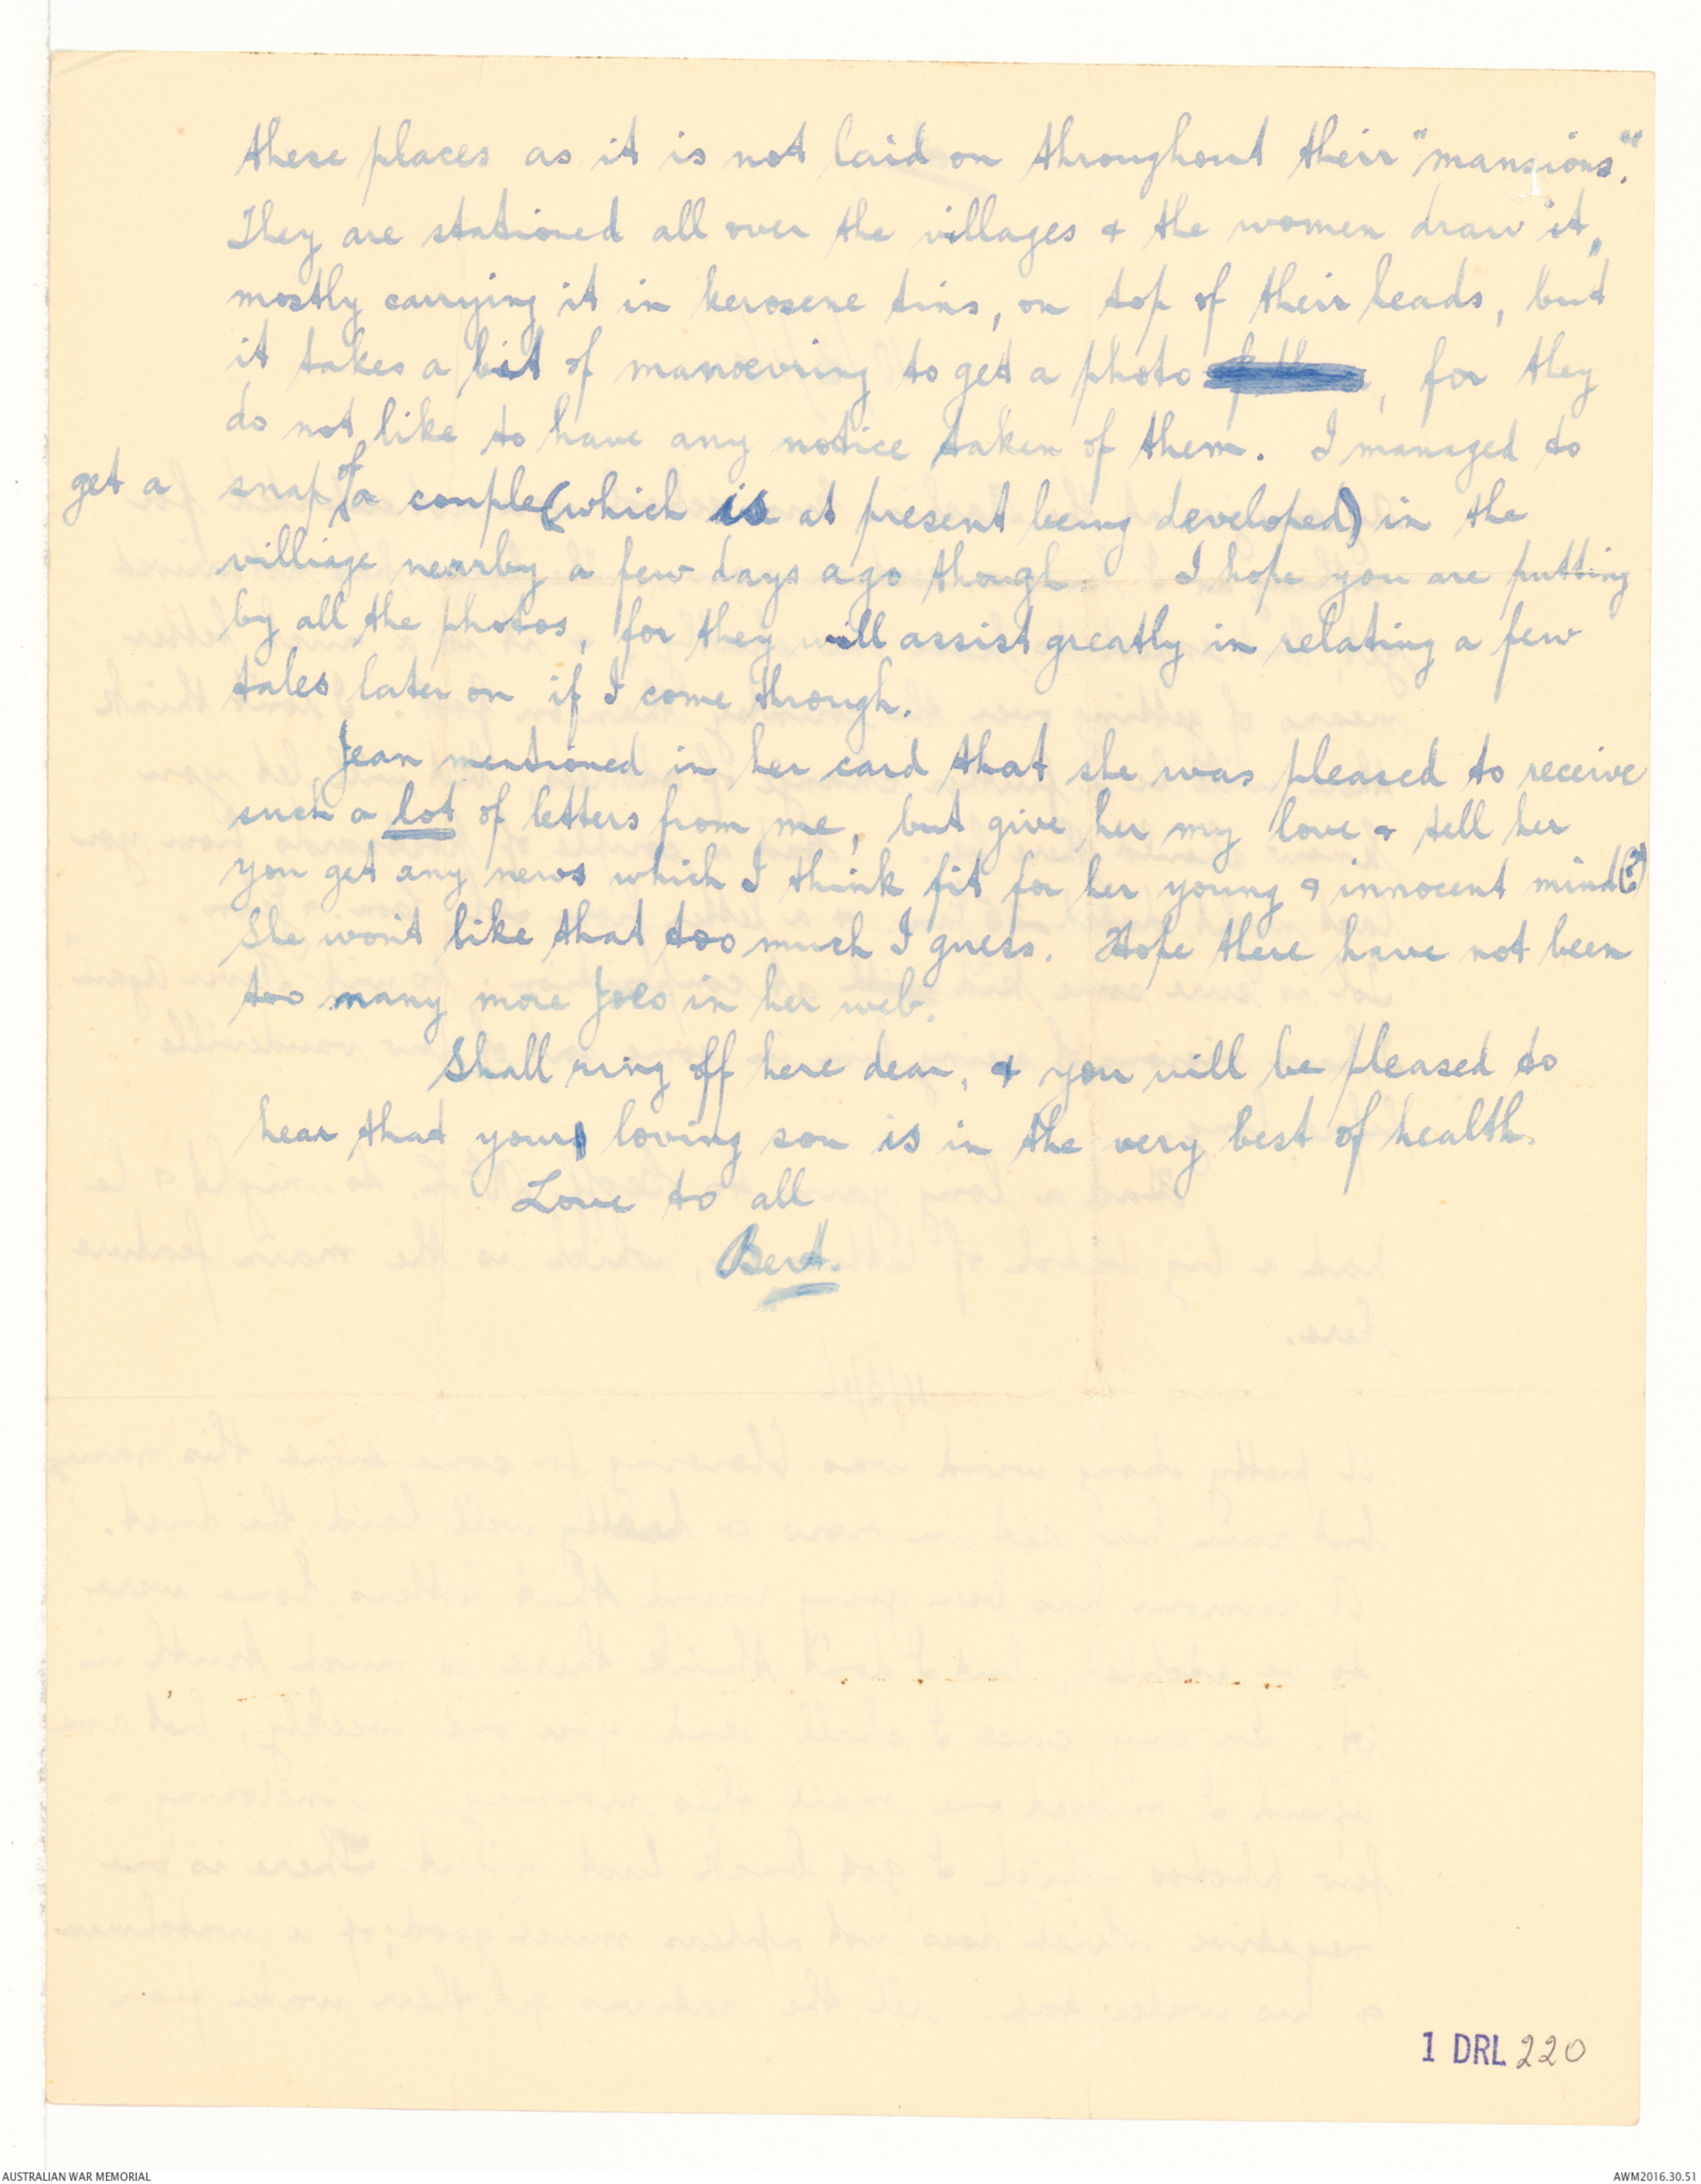 these places as it is not laid on throughout their "mansions".
They are stationed all over the villages & the women draw it,
mostly carrying it in kerosene tins, on top of their heads, but
it takes a bit of manoevring to get a photo , for they
do not like to have any notice taken of them. I managed to
get a snap of a couple (which is at present being developed) in the
villiage nearby a few days ago though. I hope you are putting
by all the photos, for they will assist greatly in relating a few
tales later on if I come through.
Jean mentioned in her card that she was pleased to receive
such a lot of letters from me, but give her my love & tell her
you get any news which I think fit for her young & innocent mind(?)
She won't like that too much I guess. Hope there have not been
too many more Joes in her web.
Shall ring off here dear, & you will be pleased to
hear that your loving son is in the very best of health.
Love to all
Bert.
1 DRL 220
AUSTRALIAN WAR MEMORIAL
AWM2016.30.51